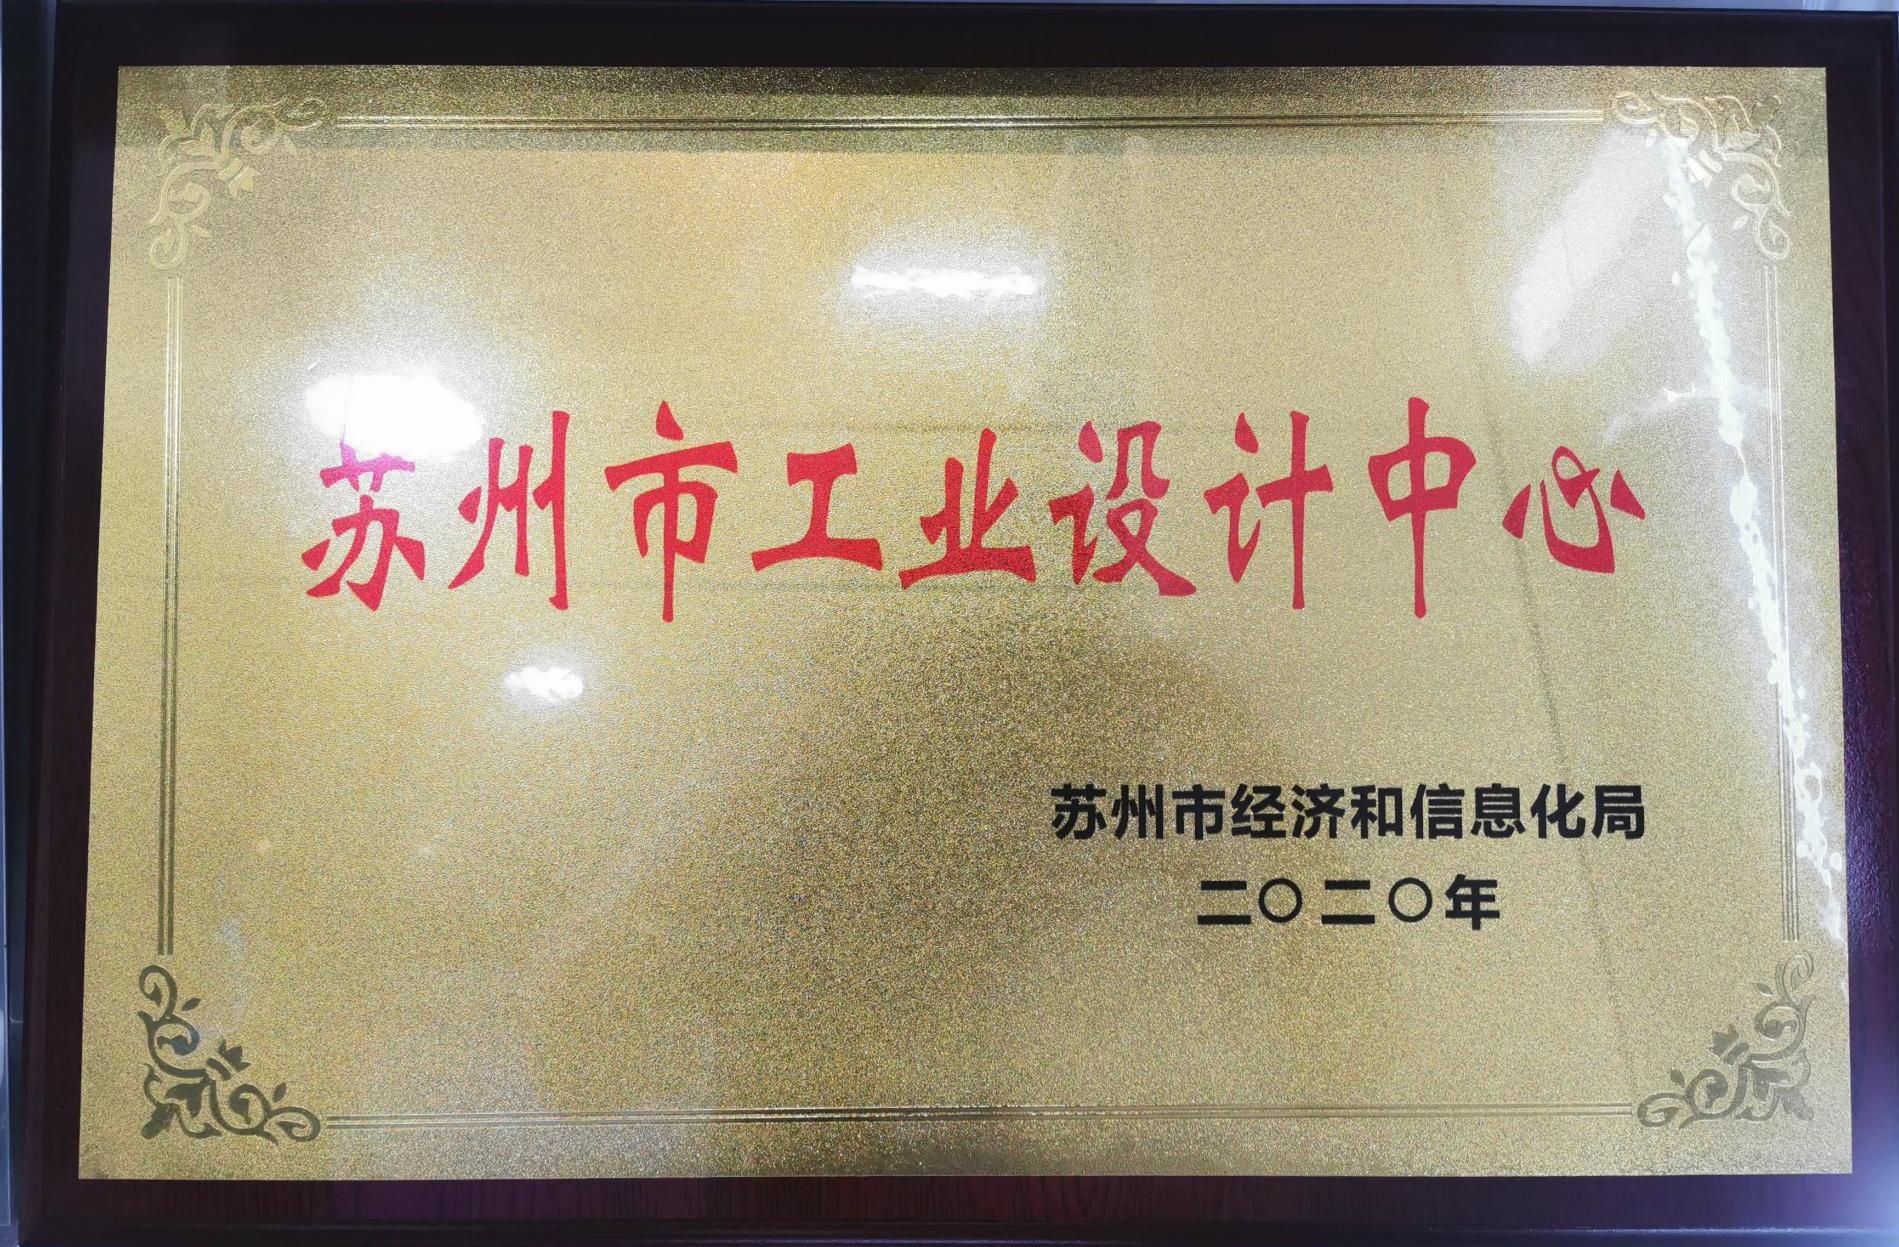 苏州市工业设计中心
苏州市经济和信息化局
二〇二〇年